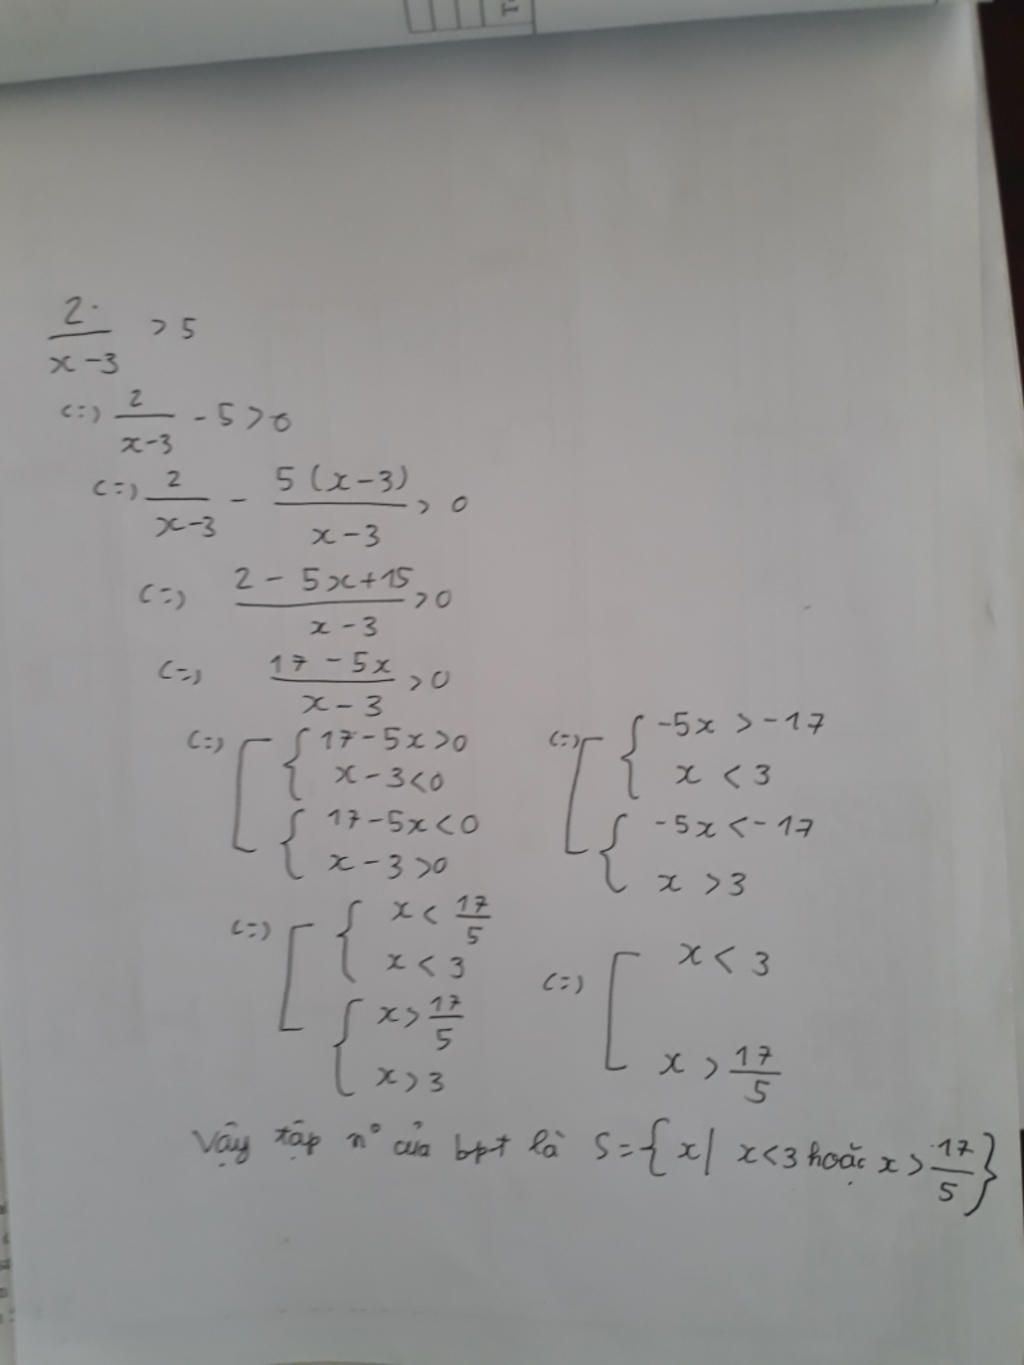 2
/(x-3) > 5
(=) 2/(x-3) - 5 > 0
(=) 2/(x-3) - 5(x-3)/(x-3) > 0
(=) (2 - 5x + 15)/(x-3) > 0
(=) (17 - 5x)/(x-3) > 0
(=) [ { 17 - 5x > 0
x - 3 < 0
{ 17 - 5x < 0
x - 3 > 0
(=) [ { -5x > -17
x < 3
{ -5x < -17
x > 3
(=) [ { x < 17/5
x < 3
{ x > 17/5
x > 3
(=) [ x < 3
x > 17/5
Vậy tập n° của bpt là S = { x | x < 3 hoặc x > 17/5 }